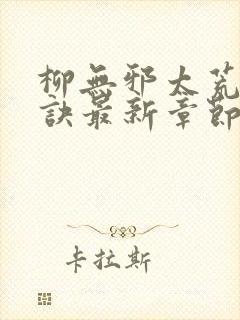 柳無邪太荒
訣最新章節
卡拉斯